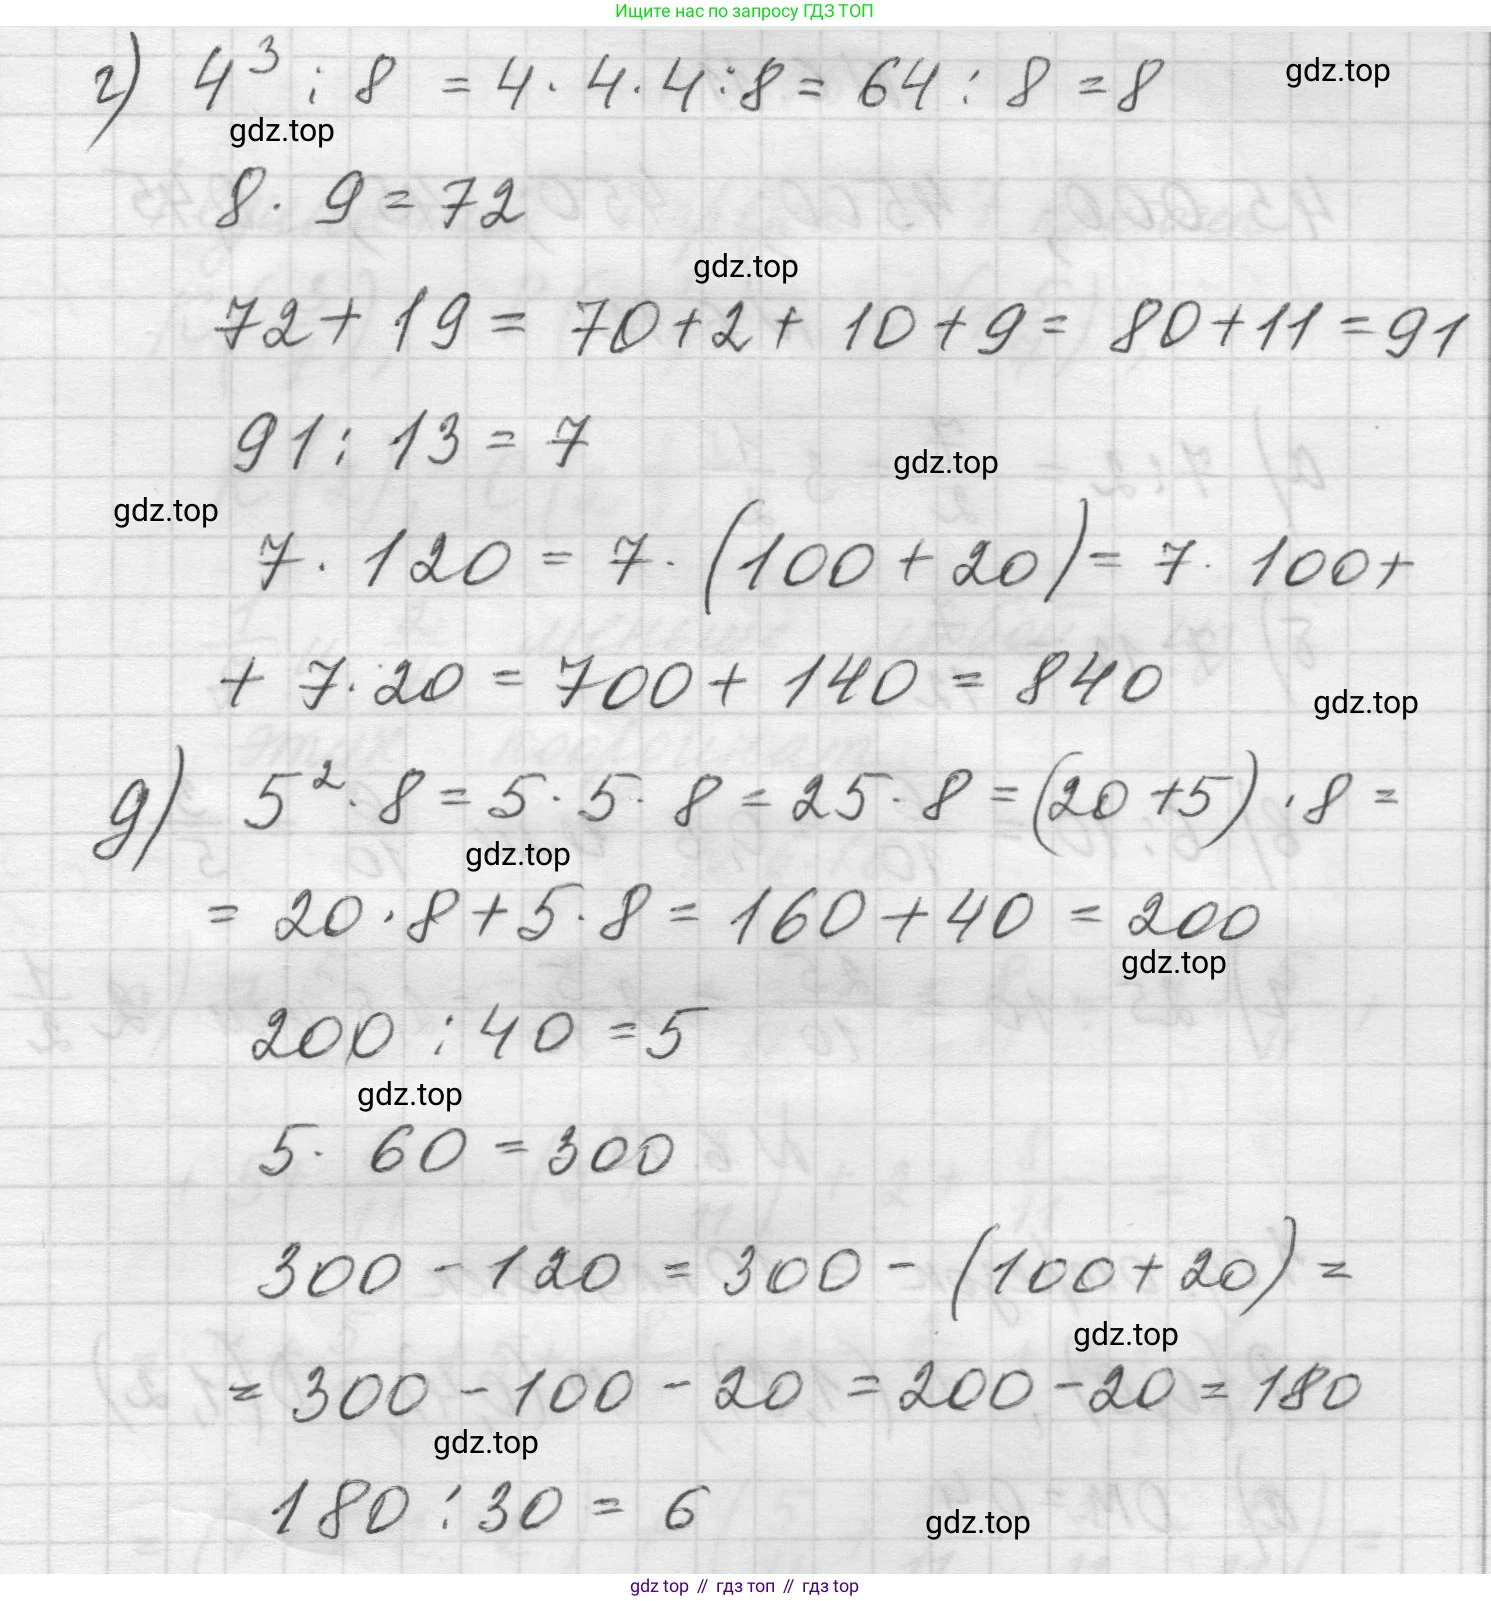 Ищите нас по запросу ГДЗ ТОП
г) 4³ : 8 = 4 · 4 · 4 : 8 = 64 : 8 = 8
gdz.top
gdz.top
8 · 9 = 72
gdz.top
72 + 19 = 70 + 2 + 10 + 9 = 80 + 11 = 91
91 : 13 = 7
gdz.top
gdz.top
7 · 120 = 7 · (100 + 20) = 7 · 100 +
+ 7 · 20 = 700 + 140 = 840
gdz.top
д) 5² · 8 = 5 · 5 · 8 = 25 · 8 = (20 + 5) · 8 =
gdz.top
= 20 · 8 + 5 · 8 = 160 + 40 = 200
gdz.top
200 : 40 = 5
gdz.top
5 · 60 = 300
300 - 120 = 300 - (100 + 20) =
gdz.top
= 300 - 100 - 20 = 200 - 20 = 180
gdz.top
180 : 30 = 6
gdz.top
gdz top // гдз топ // gdz top